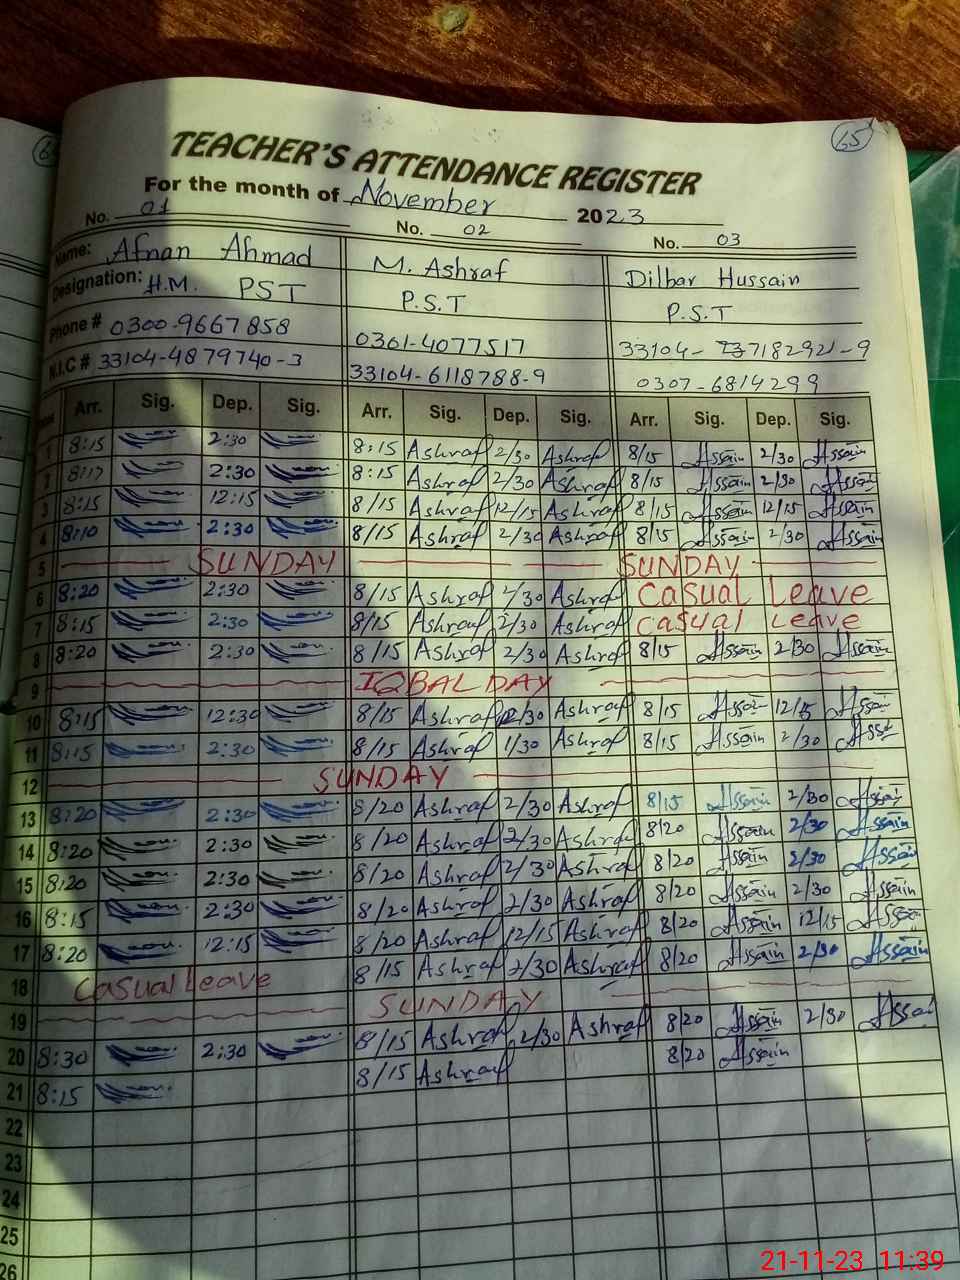 65
TEACHER'S ATTENDANCE REGISTER
For the month of November 2023
No. 01 No. 02 No. 03
Name: Afnan Ahmad M. Ashraf Dilbar Hussain
Designation: H.M. PST P.S.T P.S.T
Phone # 0300-9667858 0361-4077517 33104-
N.I.C # 33104-4879740-3 33104-6118788-9 0307-6814299
Arr. Sig. Dep. Sig. Arr. Sig. Dep. Sig. Arr. Sig. Dep. Sig.
1 8:15 2:30 8:15 Ashraf 2/30 Ashraf 8/15 Assain 2/30 Assain
2 8:17 2:30 8:15 Ashraf 2/30 Ashraf 8/15 Assain 2/30 Assain
3 8:15 12:15 8/15 Ashraf 12/15 Ashraf 8/15 Assain 12/15 Assain
4 8:10 2:30 8/15 Ashraf 2/30 Ashraf 8/15 Assain 2/30 Assain
5 SUNDAY SUNDAY
6 8:20 2:30 8/15 Ashraf 2/30 Ashraf Casual Leave
7 8:15 2:30 8/15 Ashraf 2/30 Ashraf Casual Leave
8 8:20 2:30 8/15 Ashraf 2/30 Ashraf 8/15 Assain 2/30 Assain
9 IQBAL DAY
10 8:15 12:30 8/15 Ashraf 12/30 Ashraf 8/15 Assain 12/15 Assain
11 8:15 2:30 8/15 Ashraf 1/30 Ashraf 8/15 Assain 2/30 Assain
12 SUNDAY
13 8:20 2:30 8/20 Ashraf 2/30 Ashraf 8/15 Assain 2/30 Assain
14 8:20 2:30 8/20 Ashraf 2/30 Ashraf 8/20 Assain 2/30 Assain
15 8:20 2:30 8/20 Ashraf 2/30 Ashraf 8/20 Assain 2/30 Assain
16 8:15 2:30 8/20 Ashraf 2/30 Ashraf 8/20 Assain 2/30 Assain
17 8:20 12:15 8/20 Ashraf 12/15 Ashraf 8/20 Assain 12/15 Assain
18 Casual Leave 8/15 Ashraf 2/30 Ashraf 8/20 Assain 2/30 Assain
19 SUNDAY
20 8:30 2:30 8/15 Ashraf 2/30 Ashraf 8/20 Assain 2/30 Assain
21 8:15 8/15 Ashraf 8/20 Assain
22
23
24
25
26
21-11-23 11:39